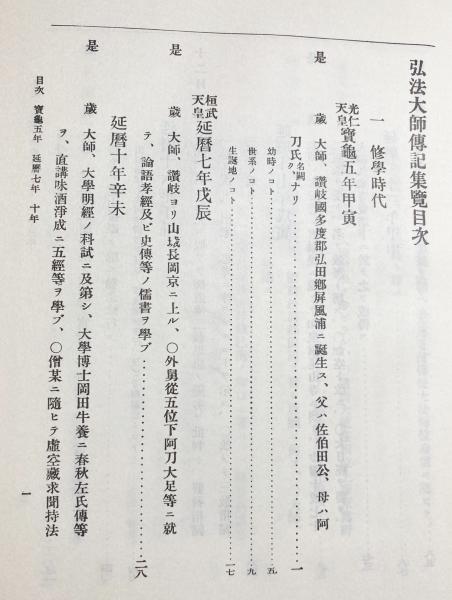 弘法大師傳記集覽目次
一 修學時代
光仁天皇 寶龜五年甲寅
是歲 大師、讚岐國多度郡弘田鄕屏風浦ニ誕生ス、父ハ佐伯田公、母ハ阿
刀氏 名闕ク、ナリ………一
幼時ノコト………五
世系ノコト………九
生誕地ノコト………一七
桓武天皇 延曆七年戊辰
是歲 大師、讚岐ヨリ山城長岡京ニ上ル、〇外舅從五位下阿刀大足等ニ就
テ、論語孝經及ビ史傳等ノ儒書ヲ學ブ………二八
延曆十年辛未
是歲 大師、大學明經ノ科試ニ及第シ、大學博士岡田牛養ニ春秋左氏傳等
ヲ、直講味酒淨成ニ五經等ヲ學ブ、〇僧某ニ隨ヒテ虛空藏求聞持法
目次 寶龜五年 延曆七年 十年
一